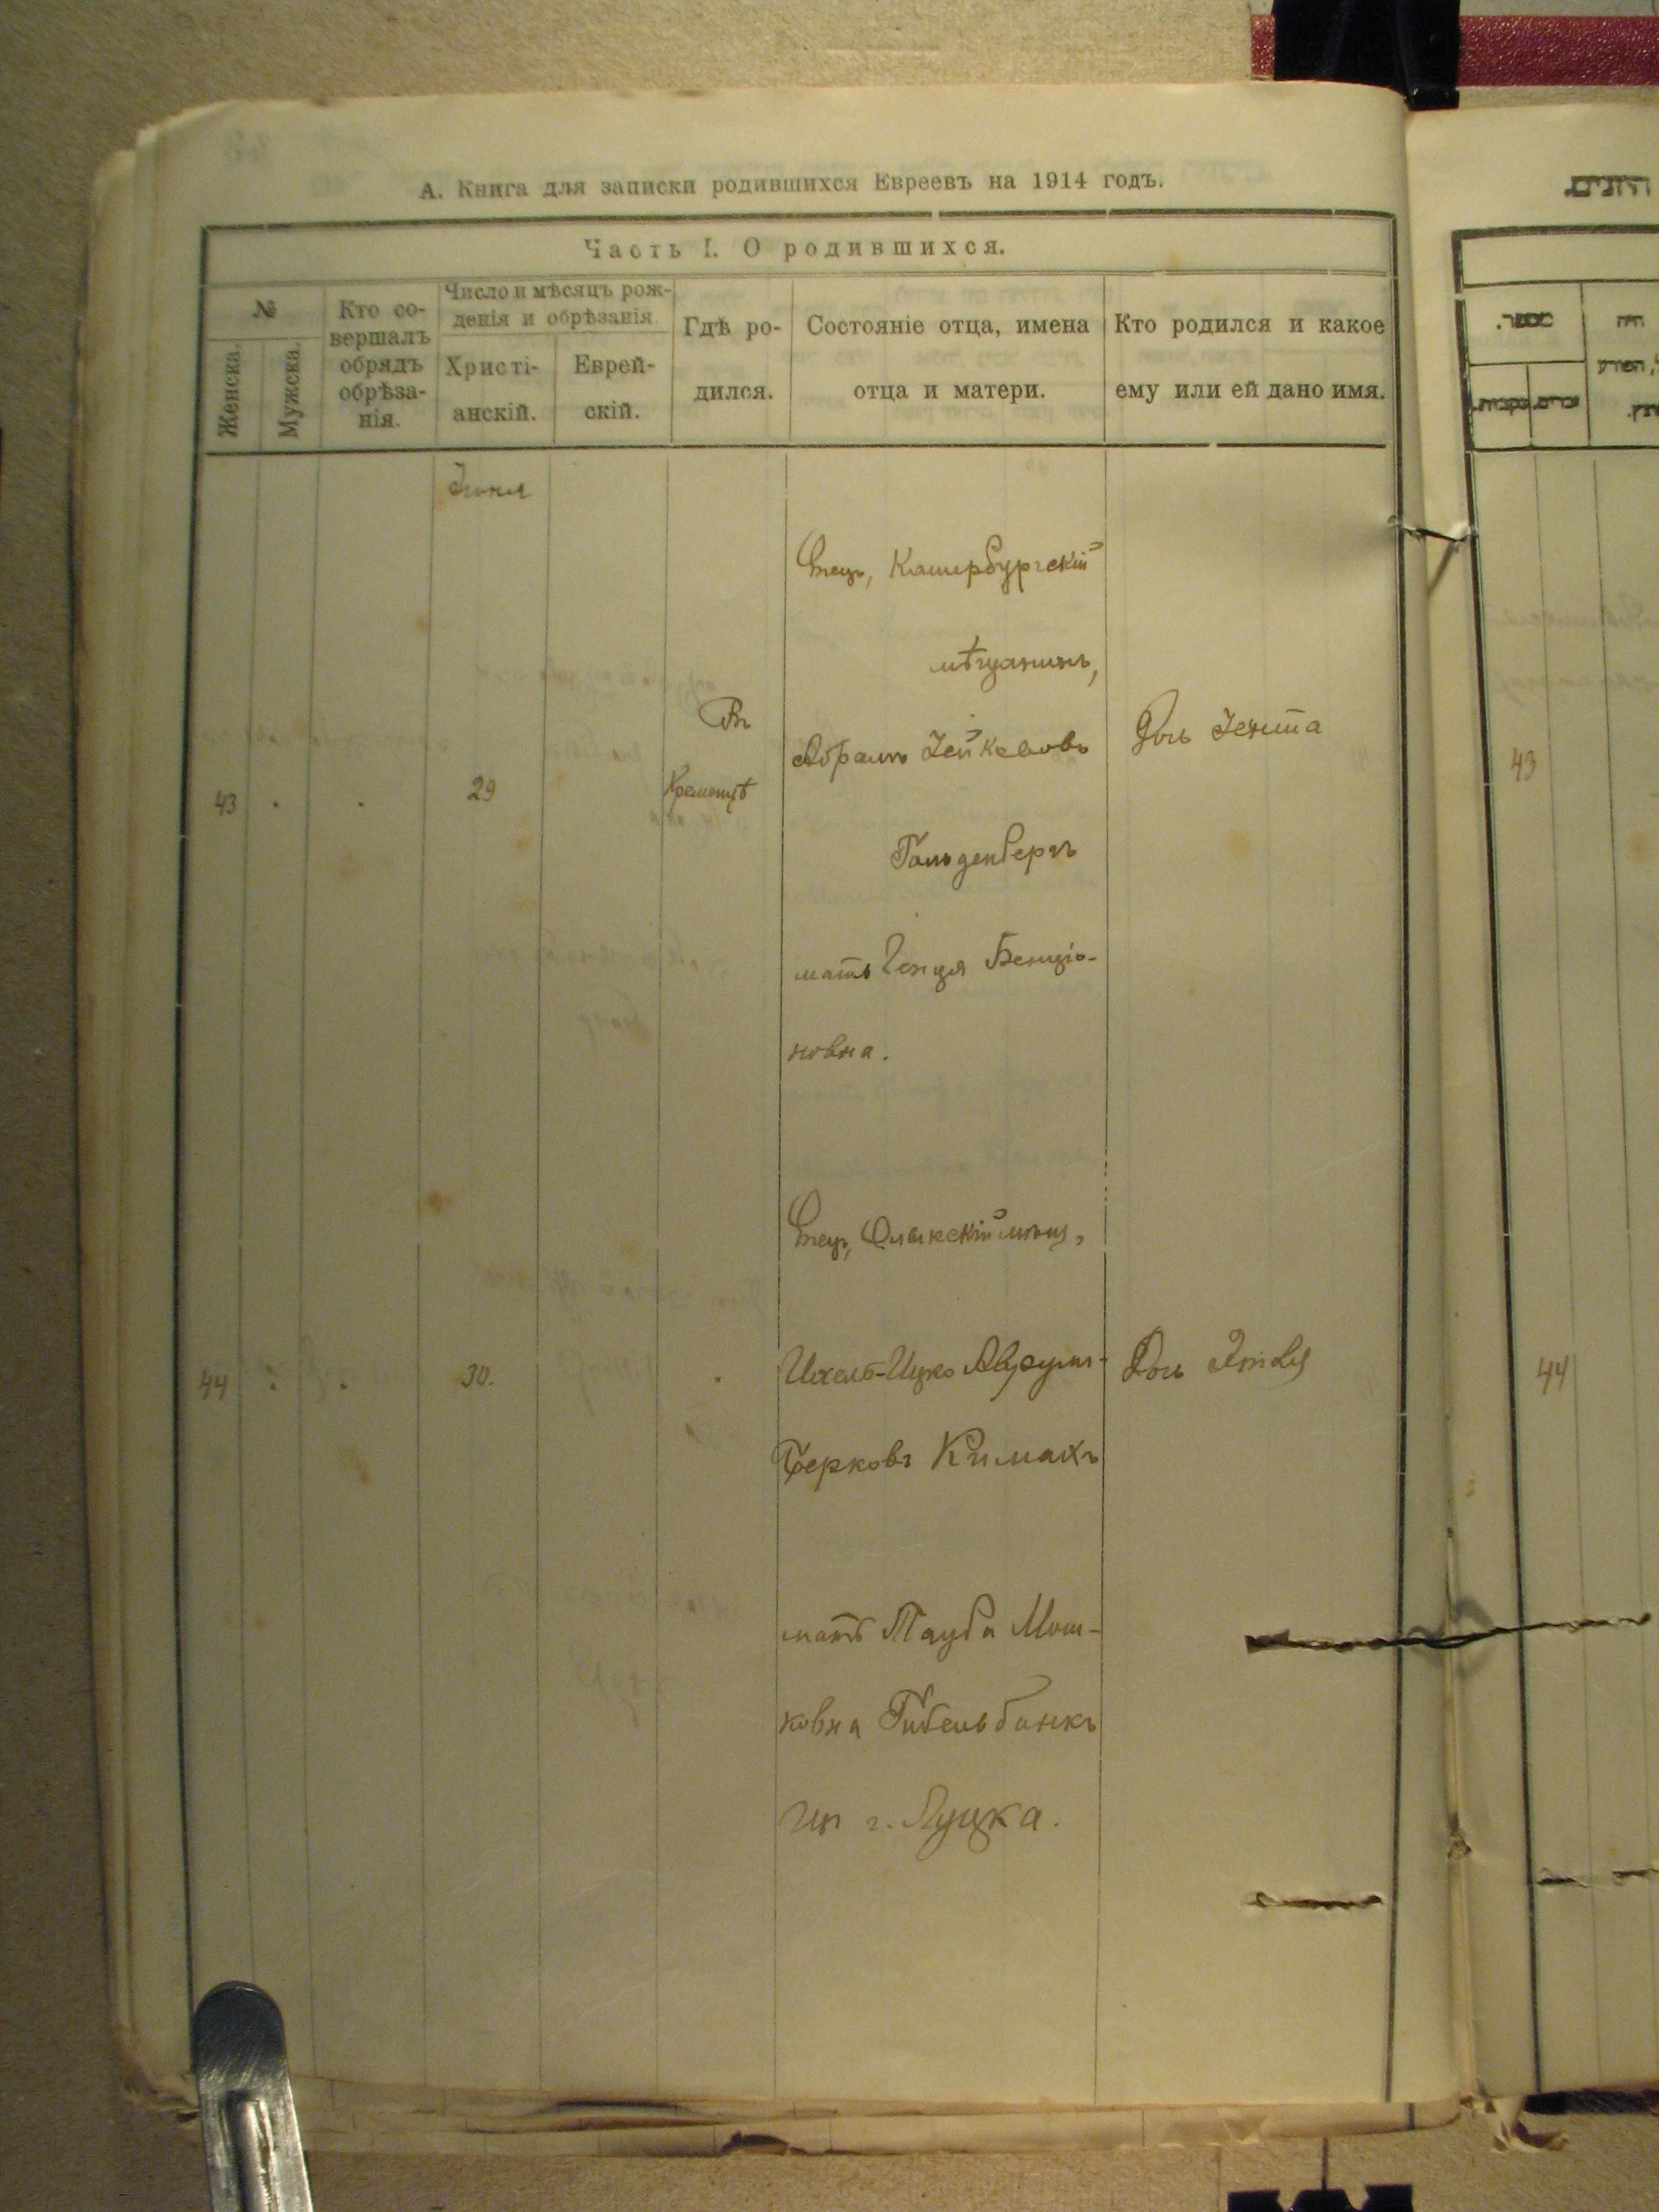 А. Книга для записки родившихся Евреевъ на 1914 годъ.
Часть I. О родившихся.
№
Женска.
Мужска.
Кто со-
вершалъ
обрядъ
обрѣза-
нія.
Число и мѣсяцъ рож-
денія и обрѣзанія
Христі-
анскій.
Еврей-
скій.
Гдѣ ро-
дился.
Состояніе отца, имена
отца и матери.
Кто родился и какое
ему или ей дано имя.
43
29
Въ
Кременцѣ
Отецъ,
мѣщанинъ,
Абрамъ
Гольденбергъ
мать Генця Бенціо-
новна.
Дочь Іента
44
30.
Отецъ, Олыкскій мѣщ,
Ихель-Ицко
Берковъ Кимахъ
мать Тауба Мош-
ковна
из г. Луцка.
Дочь
43
44